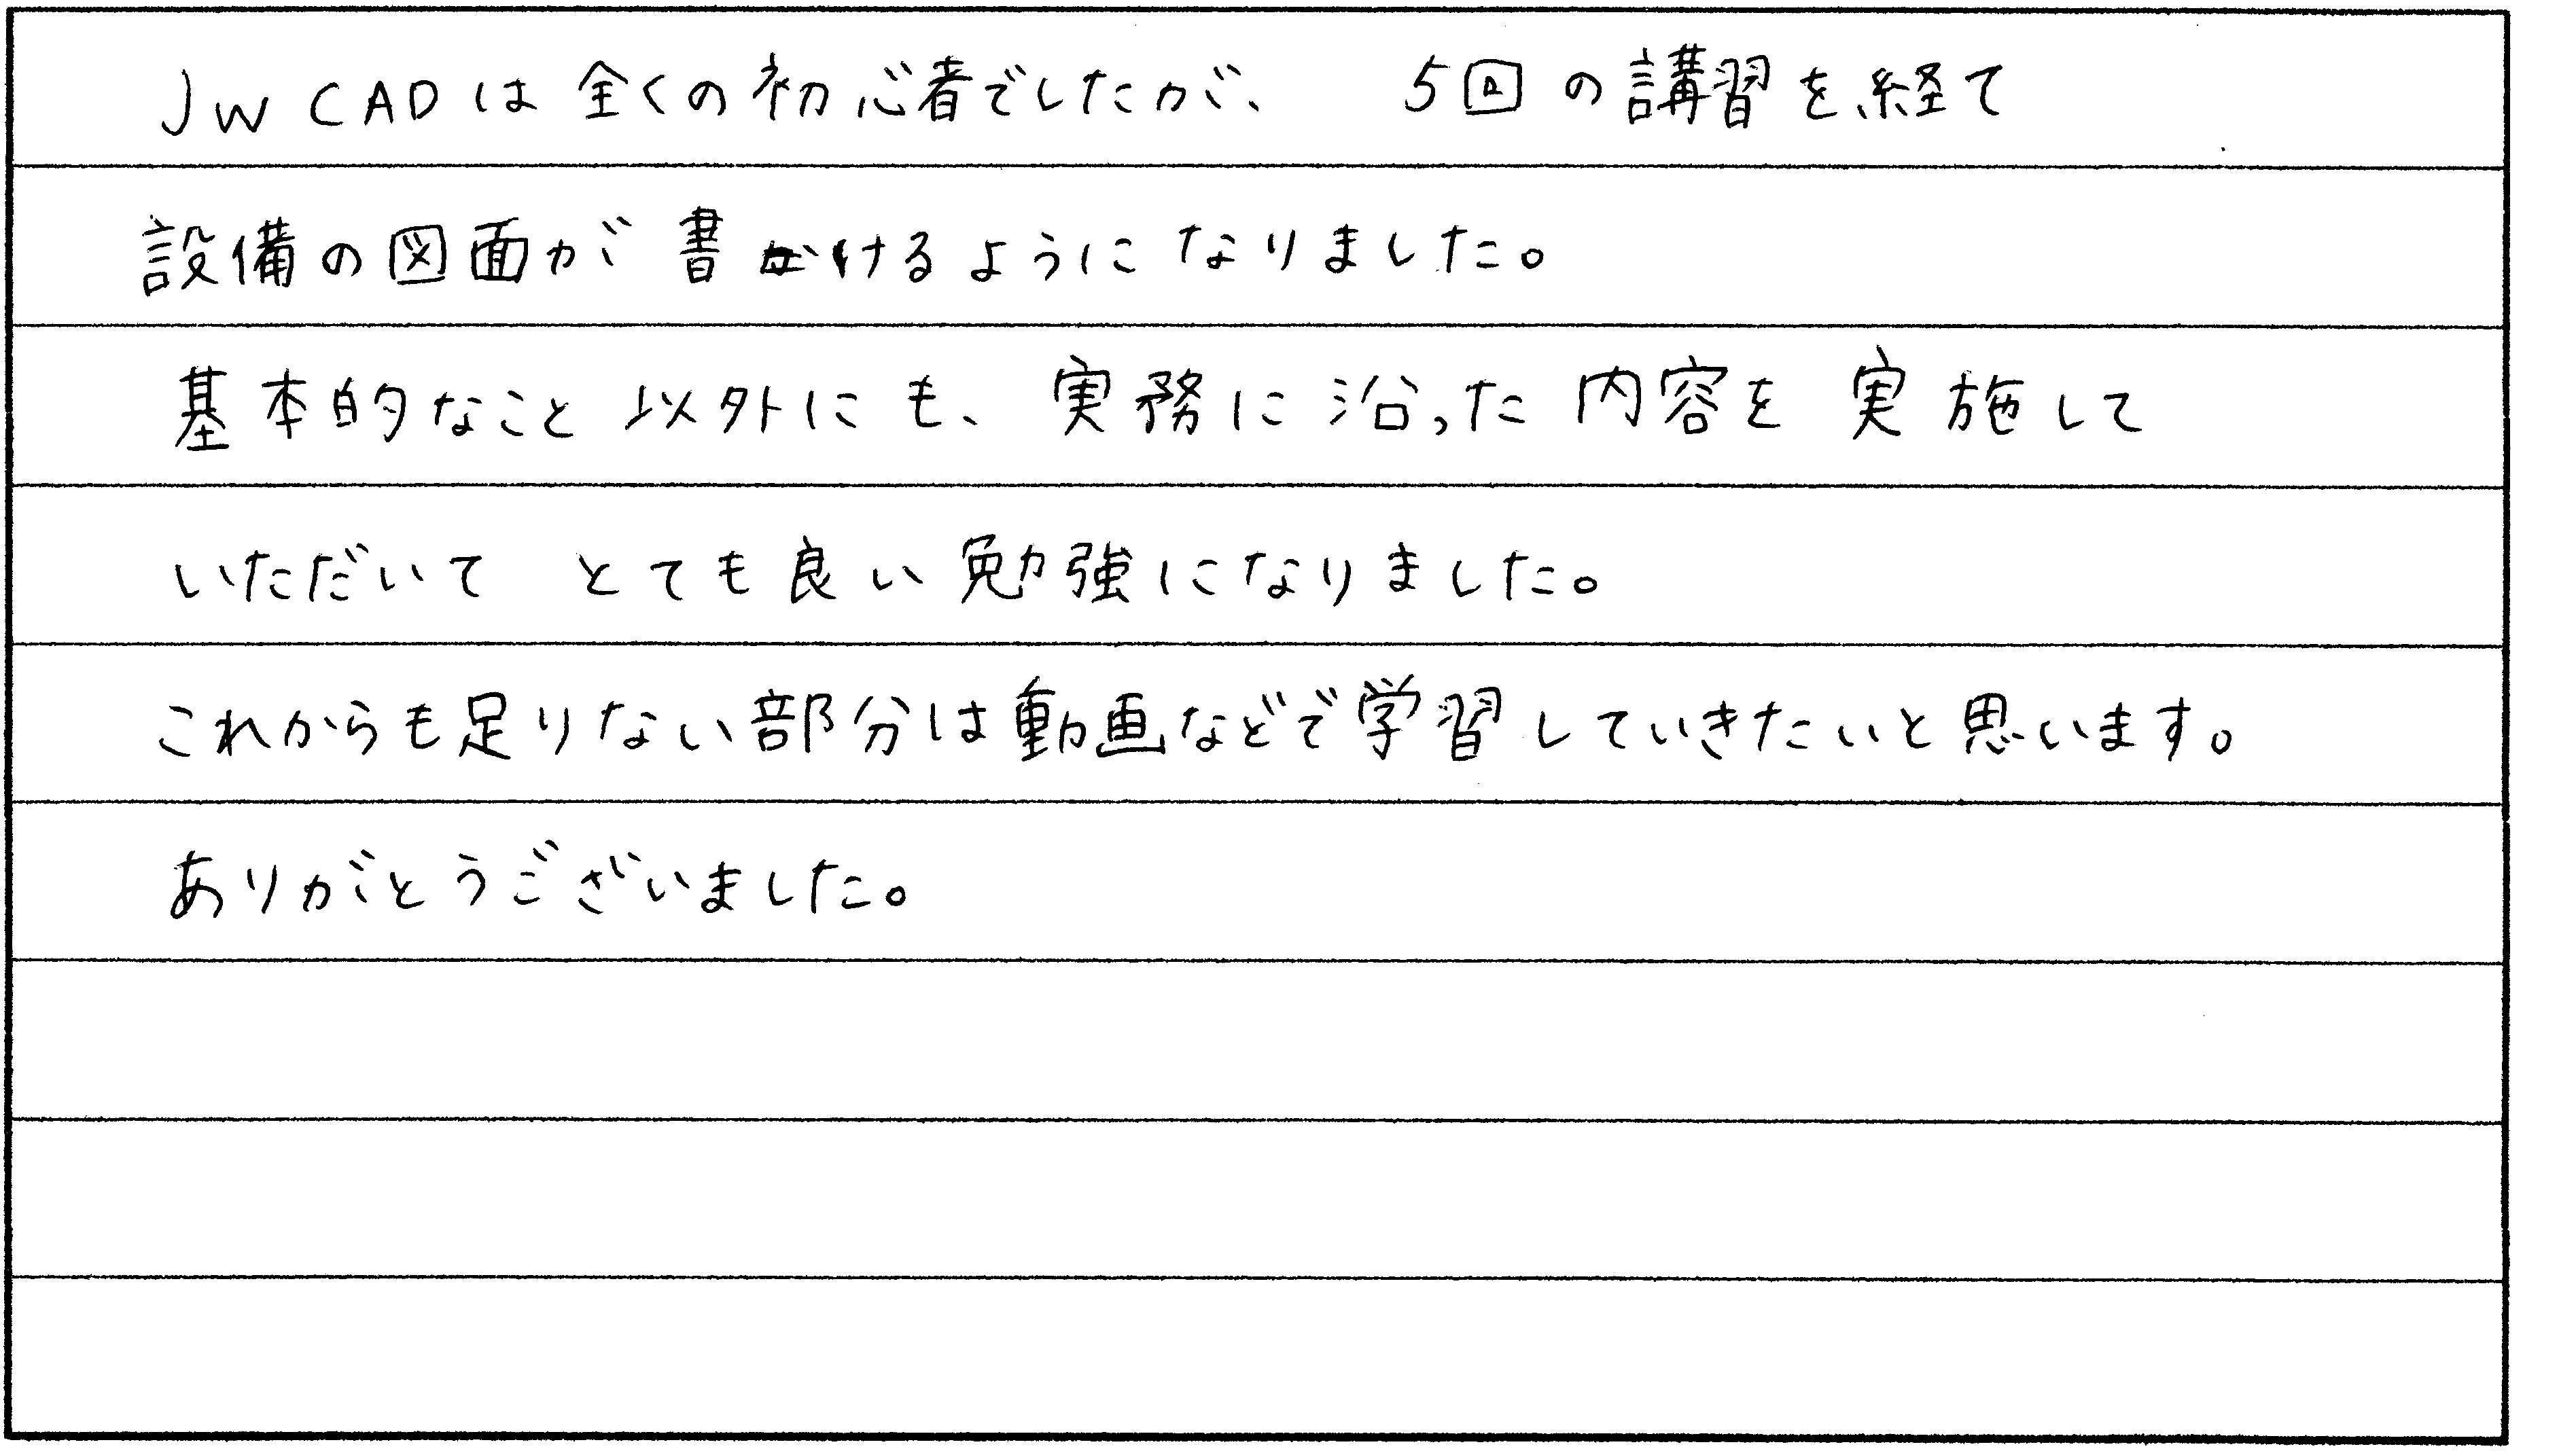 JW CADは全くの初心者でしたが、 5回の講習を経て
設備の図面が書けるようになりました。
基本的なこと以外にも、実務に沿った内容を実施して
いただいて とても良い勉強になりました。
これからも足りない部分は動画などで学習していきたいと思います。
ありがとうございました。